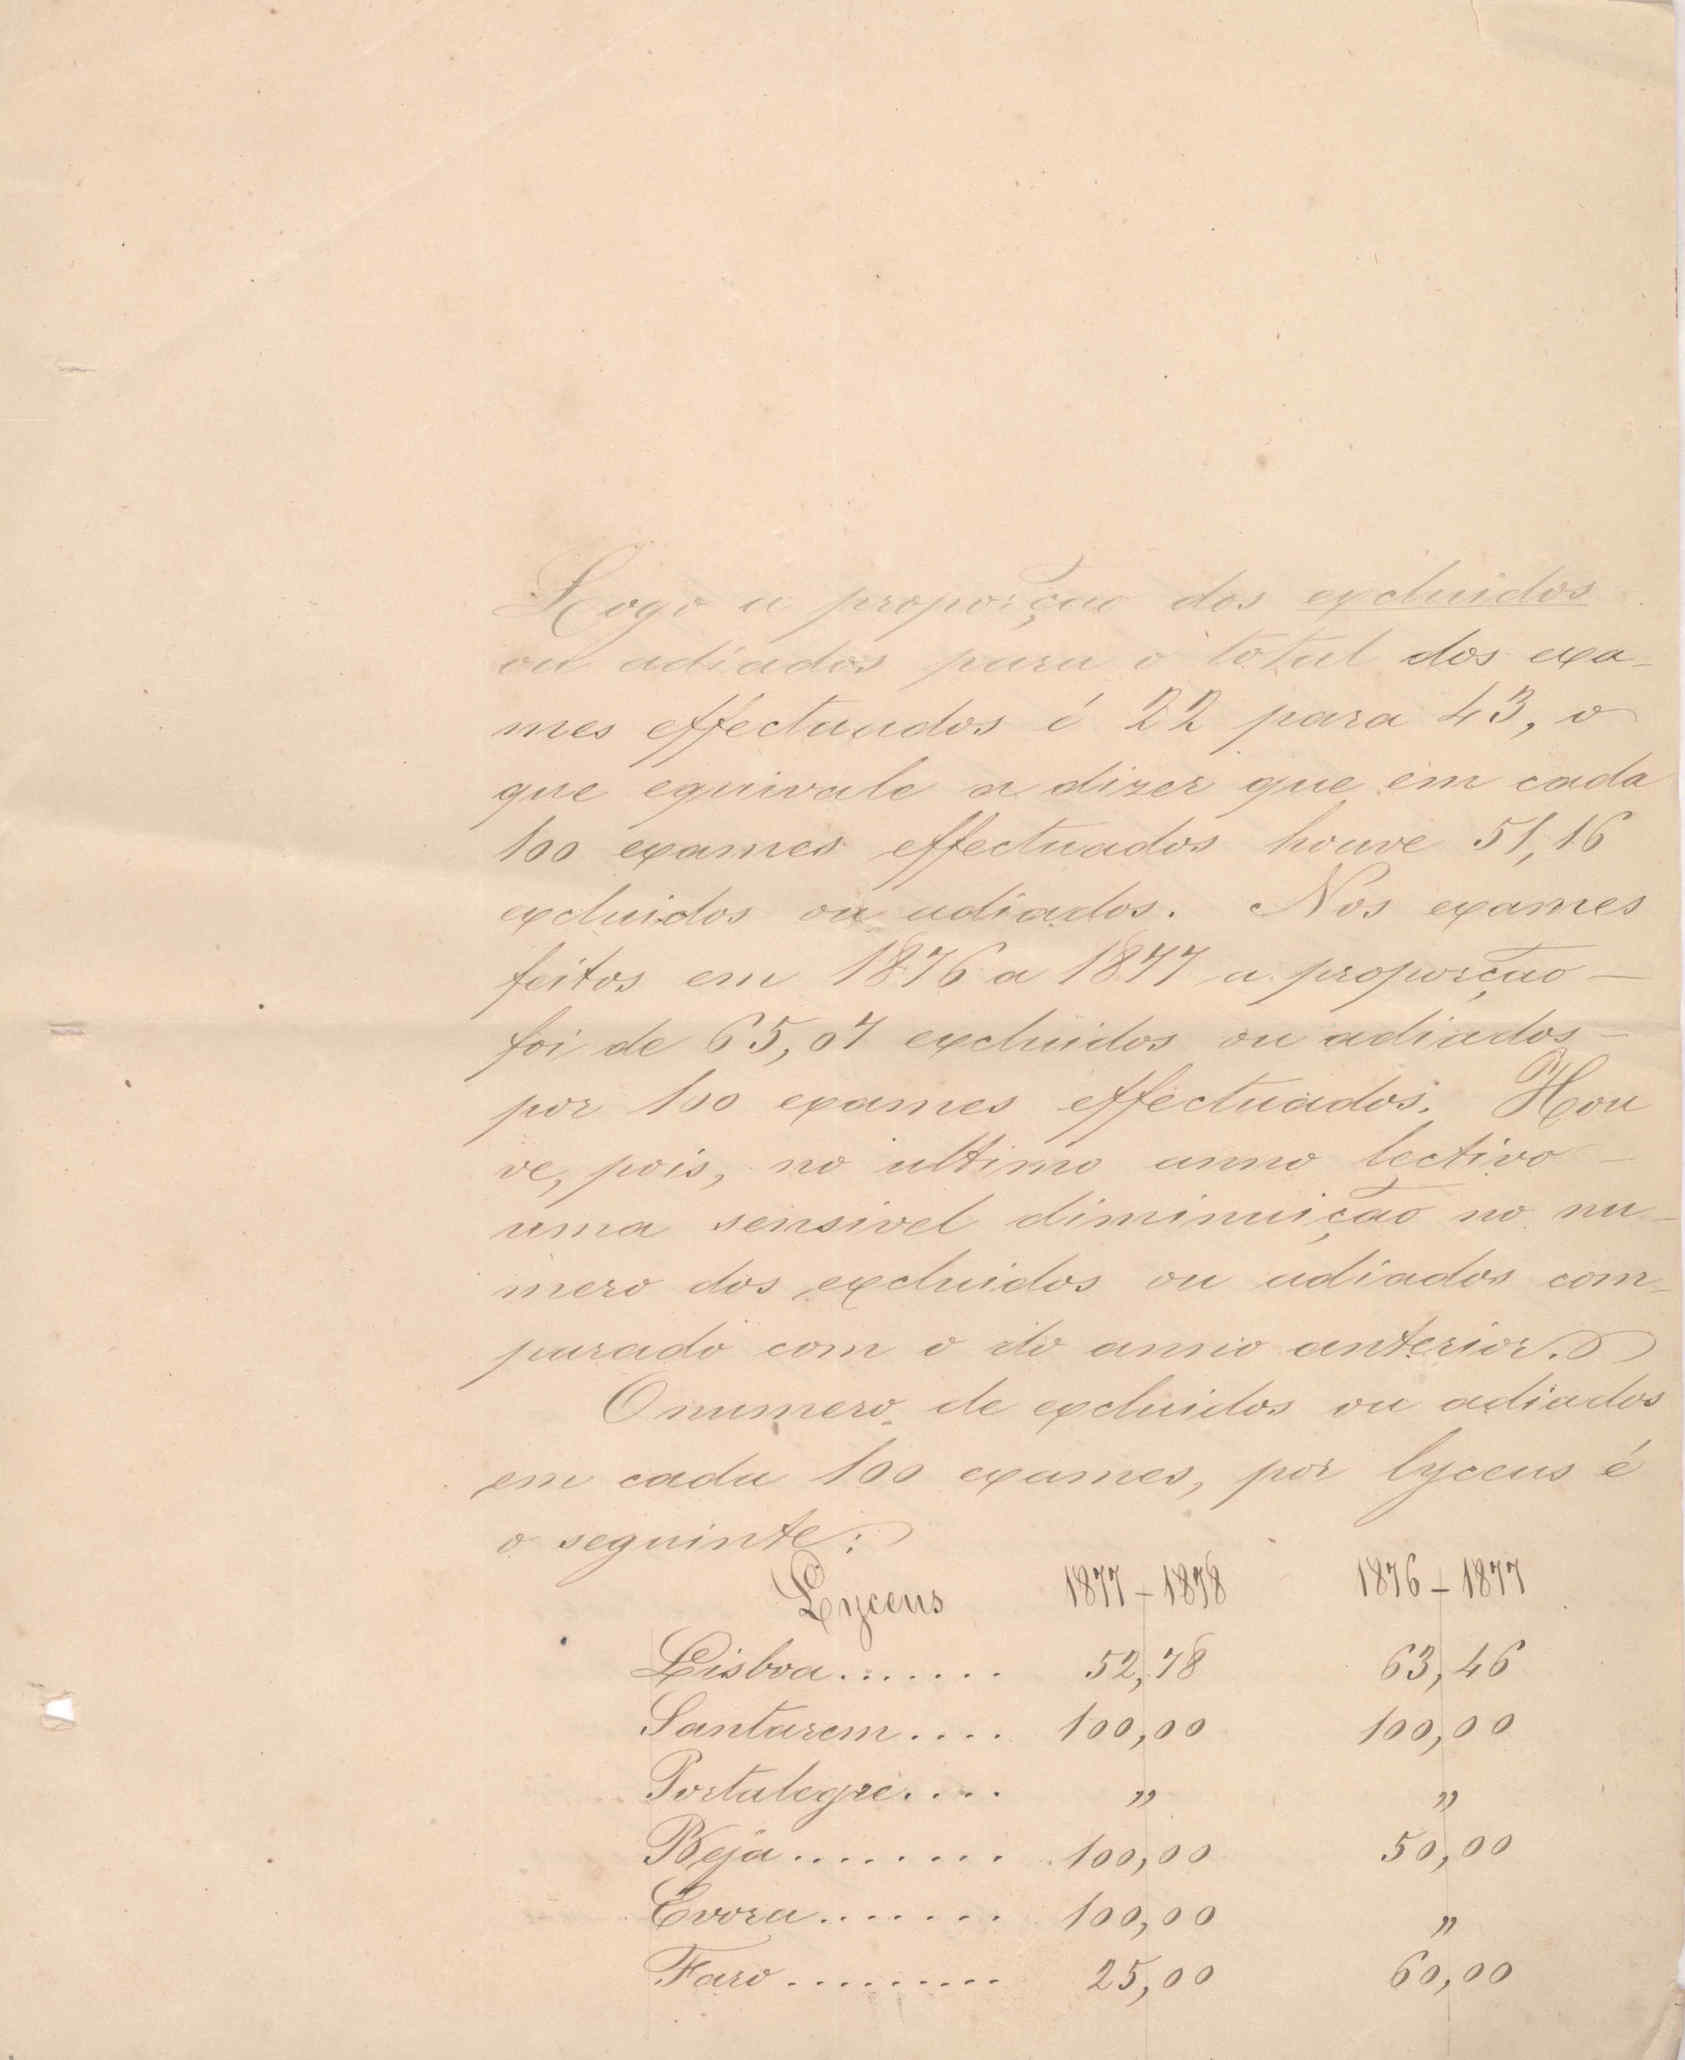 Logo a proporção dos excluidos
ou adiados para o total dos exa-
mes effectuados é 22 para 43, o
que equivale a dizer que em cada
100 exames effectuados houve 51,16
excluidos ou adiados. Nos exames
feitos em 1876 a 1877 a proporção —
foi de 65,07 excluidos ou adiados —
por 100 exames effectuados. Hou
ve, pois, no ultimo anno lectivo —
uma sensivel diminuição no nu-
mero dos excluidos ou adiados com-
parado com o do anno anterior.
O numero de excluidos ou adiados
em cada 100 exames, por lyceus é
o seguinte:
Lyceus 1877–1878 1876–1877
Lisboa....... 52,78 63,46
Santarem.... 100,00 100,00
Portalegre.... " "
Beja........ 100,00 50,00
Evora....... 100,00 "
Faro......... 25,00 60,00